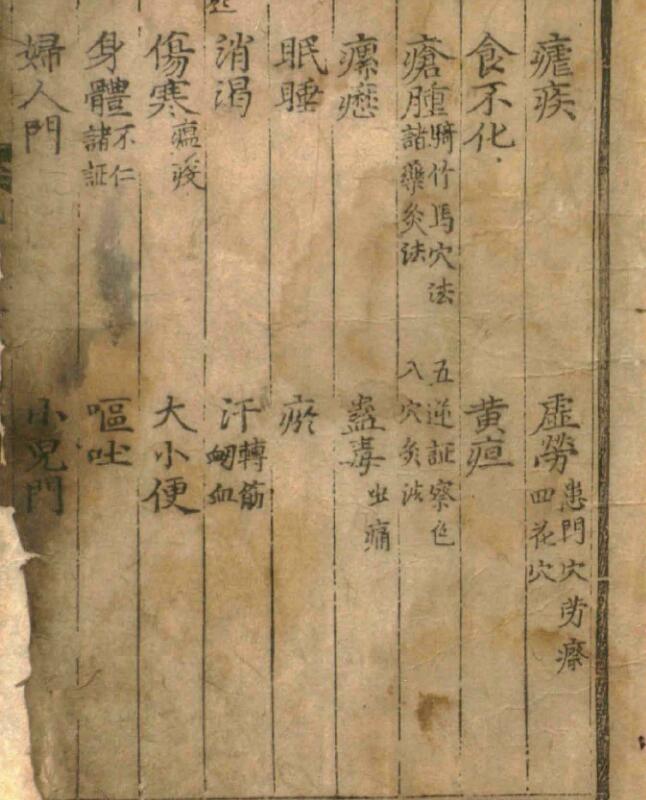 瘧疾 虛勞 患門穴 劳瘵 四花穴
食不化 黃疸
瘡腫 騎竹馬穴法 諸藥灸法 五逆証察色 八穴灸法
瘰癧 蠱毒 痛
眠睡 瘀
消渴 汗 轉筋 衄血
傷寒 瘟疫 大小便
身體 不仁 諸証 嘔吐
婦人門 小兒門